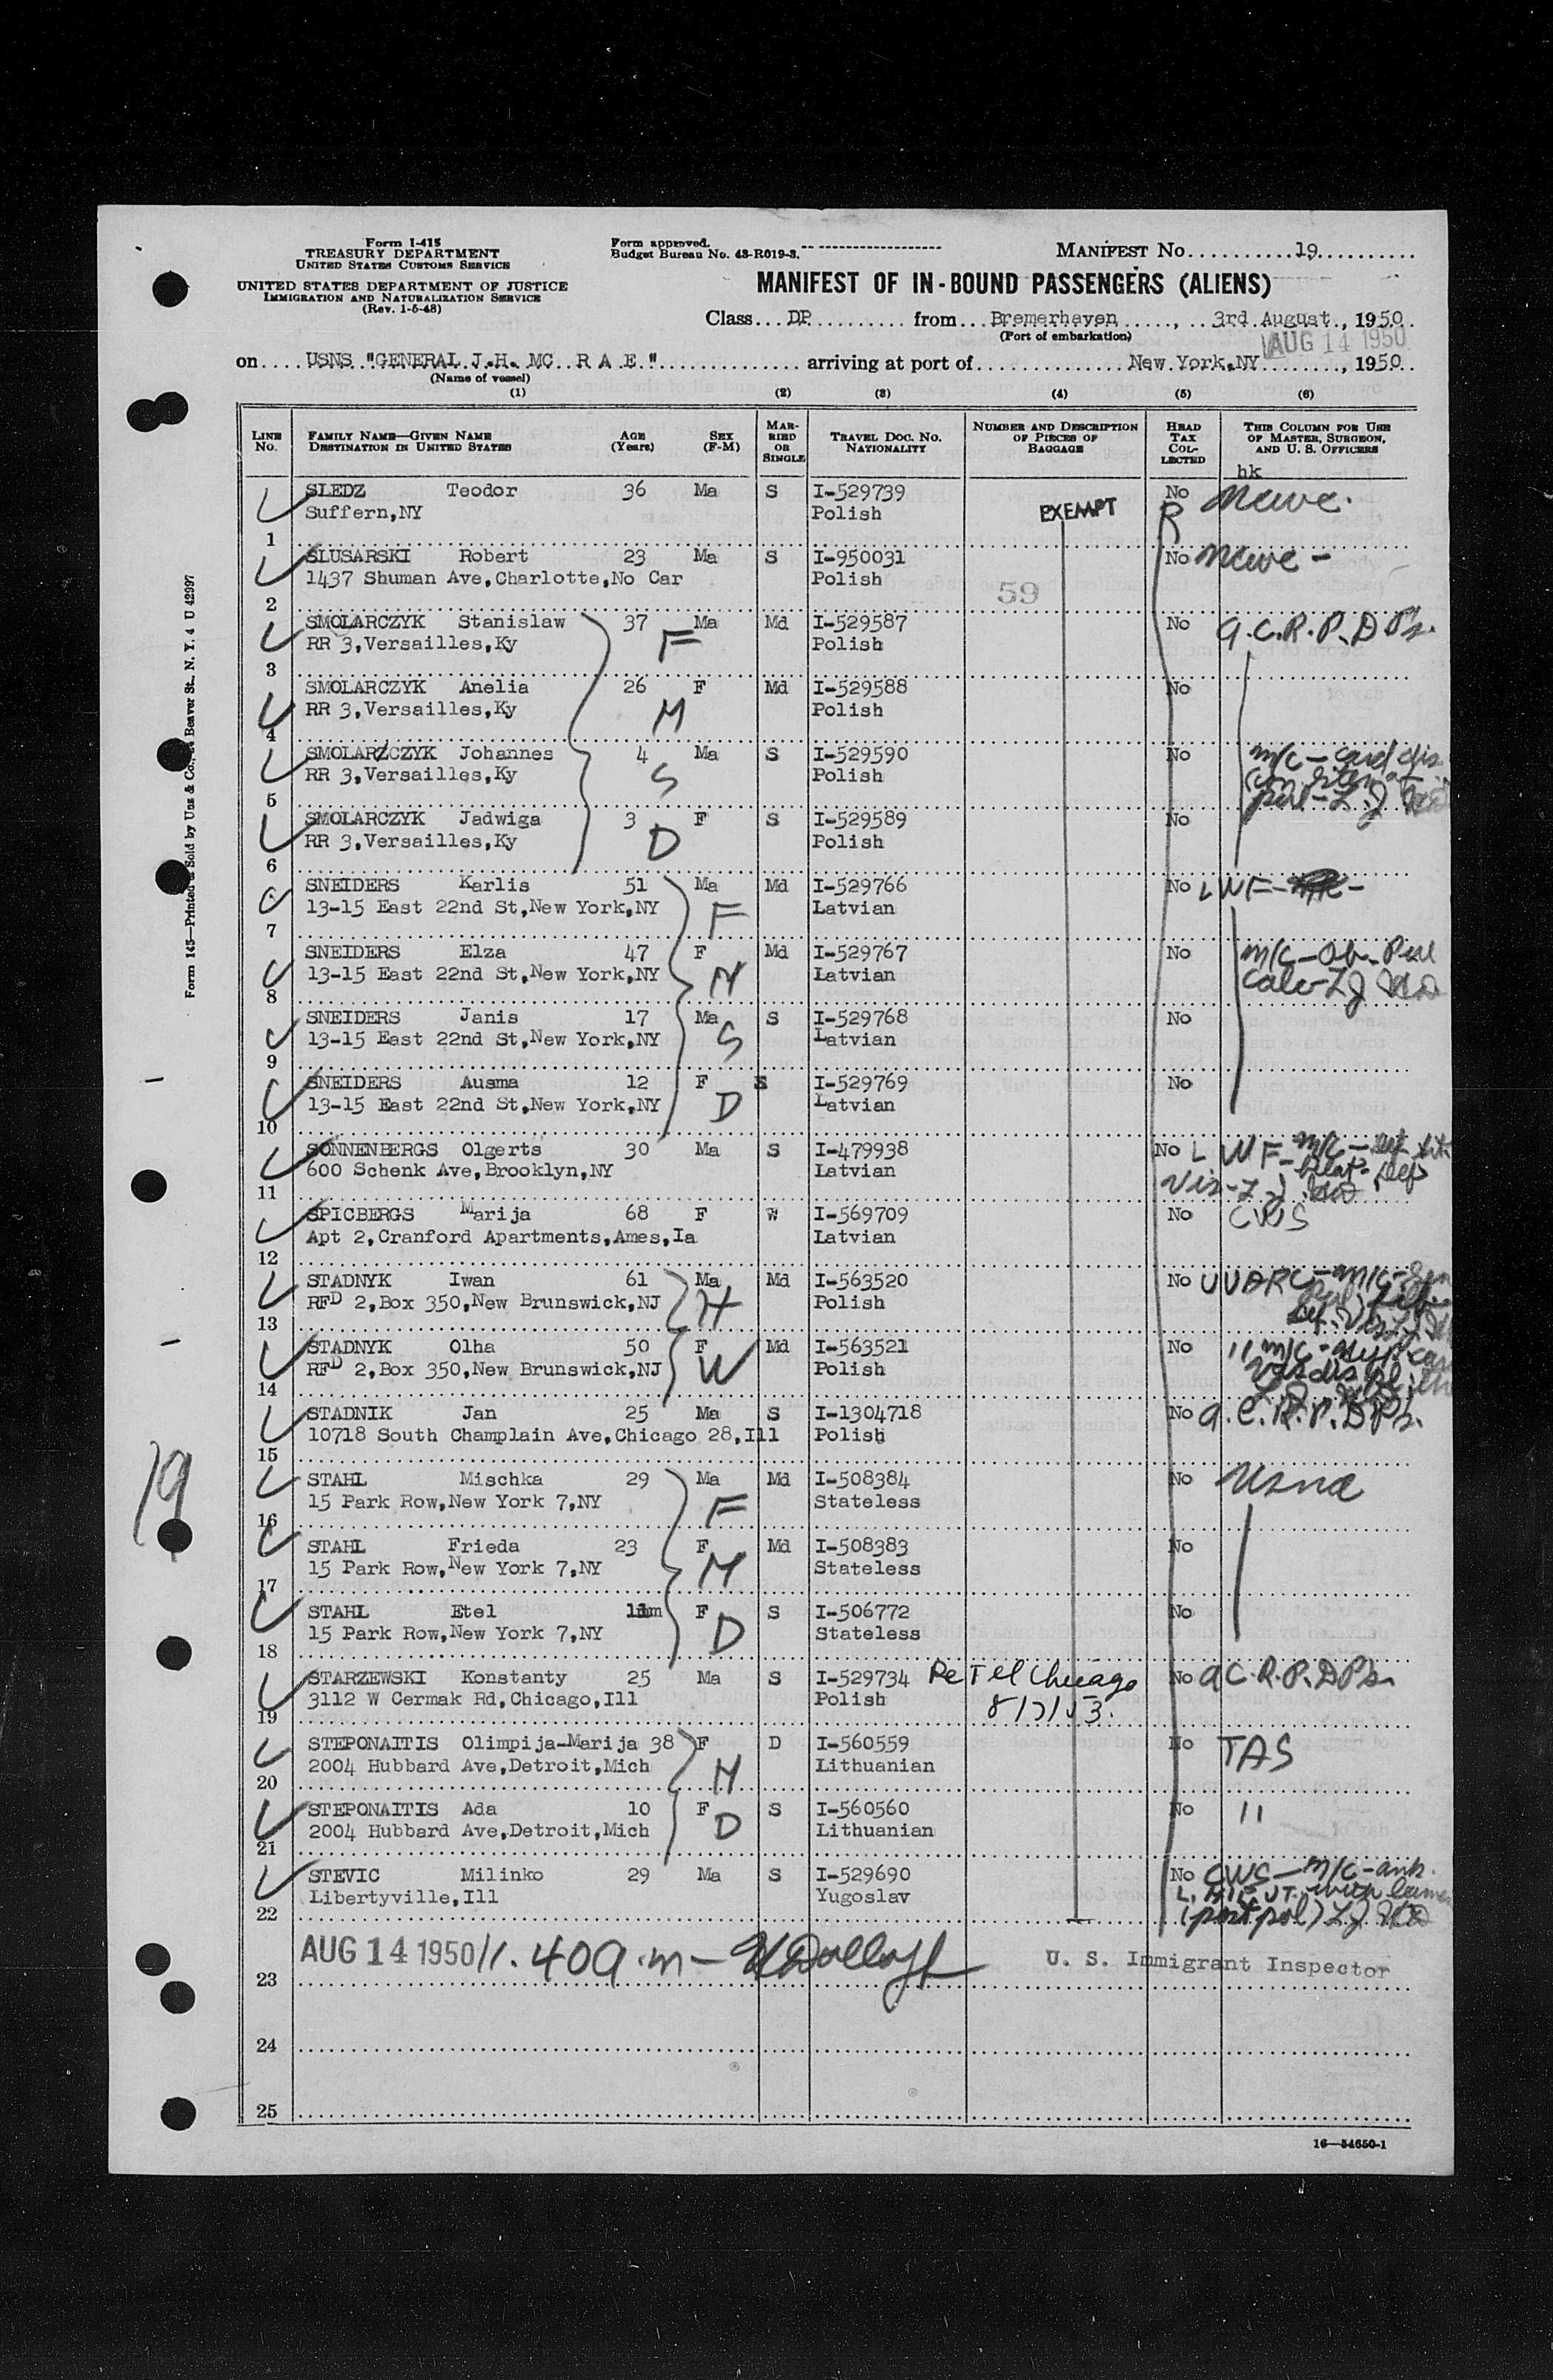 Form I-415
TREASURY DEPARTMENT
UNITED STATES CUSTOMS SERVICE
UNITED STATES DEPARTMENT OF JUSTICE
IMMIGRATION AND NATURALIZATION SERVICE
(Rev. 1-5-48)
Form approved.
Budget Bureau No. 43-R019-3.
MANIFEST No. 19
MANIFEST OF IN-BOUND PASSENGERS (ALIENS)
Class DP from Bremerhaven, 3rd August, 1950
(Port of embarkation)
AUG 14 1950
on USNS "GENERAL J.H. MC R A E" arriving at port of New York,NY, 1950
(Name of vessel)
(1) (2) (3) (4) (5) (6)
LINE No. FAMILY NAME—GIVEN NAME DESTINATION IN UNITED STATES AGE (Years) SEX (F-M) MARRIED OR SINGLE TRAVEL DOC. NO. NATIONALITY NUMBER AND DESCRIPTION OF PIECES OF BAGGAGE HEAD TAX COLLECTED THIS COLUMN FOR USE OF MASTER, SURGEON, AND U. S. OFFICERS
hk
SLEDZ Teodor 36 Ma S I-529739 No
Suffern,NY Polish EXEMPT R
1
SLUSARSKI Robert 23 Ma S I-950031 No
1437 Shuman Ave,Charlotte,No Car Polish
2 59
SMOLARCZYK Stanislaw 37 Ma Md I-529587 No A.C.R.P.DPs.
RR 3,Versailles,Ky F Polish
3
SMOLARCZYK Anelia 26 F Md I-529588 No
RR 3,Versailles,Ky M Polish
4
SMOLARZCZYK Johannes 4 Ma S I-529590 No m/c - card dis
RR 3,Versailles,Ky S Polish
5
SMOLARCZYK Jadwiga 3 F S I-529589 No
RR 3,Versailles,Ky D Polish
6
SNEIDERS Karlis 51 Ma Md I-529766 No LWF
13-15 East 22nd St,New York,NY F Latvian
7
SNEIDERS Elza 47 F Md I-529767 No m/c
13-15 East 22nd St,New York,NY M Latvian
8
SNEIDERS Janis 17 Ma S I-529768 No
13-15 East 22nd St,New York,NY S Latvian
9
SNEIDERS Ausma 12 F S I-529769 No
13-15 East 22nd St,New York,NY D Latvian
10
SONNENBERGS Olgerts 30 Ma S I-479938 No LWF - m/c
600 Schenk Ave,Brooklyn,NY Latvian
11
SPICBERGS Marija 68 F W I-569709 No CWS
Apt 2,Cranford Apartments,Ames,Ia Latvian
12
STADNYK Iwan 61 Ma Md I-563520 No UUARC - m/c
RFD 2,Box 350,New Brunswick,NJ H Polish
13
STADNYK Olha 50 F Md I-563521 No " m/c
RFD 2,Box 350,New Brunswick,NJ W Polish
14
STADNIK Jan 25 Ma S I-1304718 No A.C.R.P.DPs.
10718 South Champlain Ave,Chicago 28,Ill Polish
15
STAHL Mischka 29 Ma Md I-508384 No Usna
15 Park Row,New York 7,NY F Stateless
16
STAHL Frieda 23 F Md I-508383 No
15 Park Row,New York 7,NY M Stateless
17
STAHL Etel 11m F S I-506772 No
15 Park Row,New York 7,NY D Stateless
18
STARZEWSKI Konstanty 25 Ma S I-529734 Re Tel Chicago No A.C.R.P.DPs.
3112 W Cermak Rd,Chicago,Ill Polish
19
STEPONAITIS Olimpija-Marija 38 F D I-560559 No TAS
2004 Hubbard Ave,Detroit,Mich M Lithuanian
20
STEPONAITIS Ada 10 F S I-560560 No "
2004 Hubbard Ave,Detroit,Mich D Lithuanian
21
STEVIC Milinko 29 Ma S I-529690 No CWS - m/c - ank.
Libertyville,Ill Yugoslav
22
AUG 14 1950 11.40 a.m - U. S. Immigrant Inspector
23
24
25
16—54650-1
Form 145—Printed & Sold by Unz & Co., Beaver St., N. Y. 4 U 42997
19